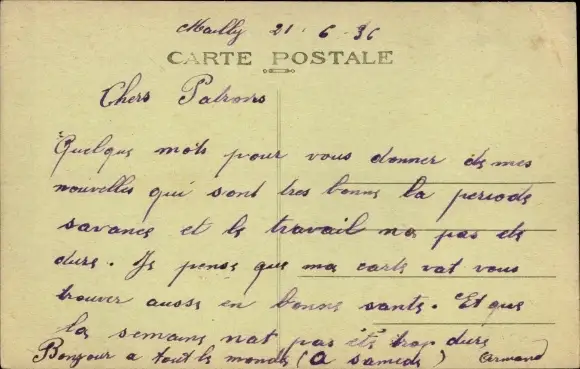 Mailly 21.6.36
CARTE POSTALE
Chers Patrons
Quelque mots pour vous donner de mes
nouvelles qui sont tres bonne la periode
savance et le travail na pas ete
dure. Je pense que ma carte vat vous
trouver ausse en bonne sante. Et que
la semaine nat pas ete trop dure
Bonjour a tout le monde (a samede) Armand